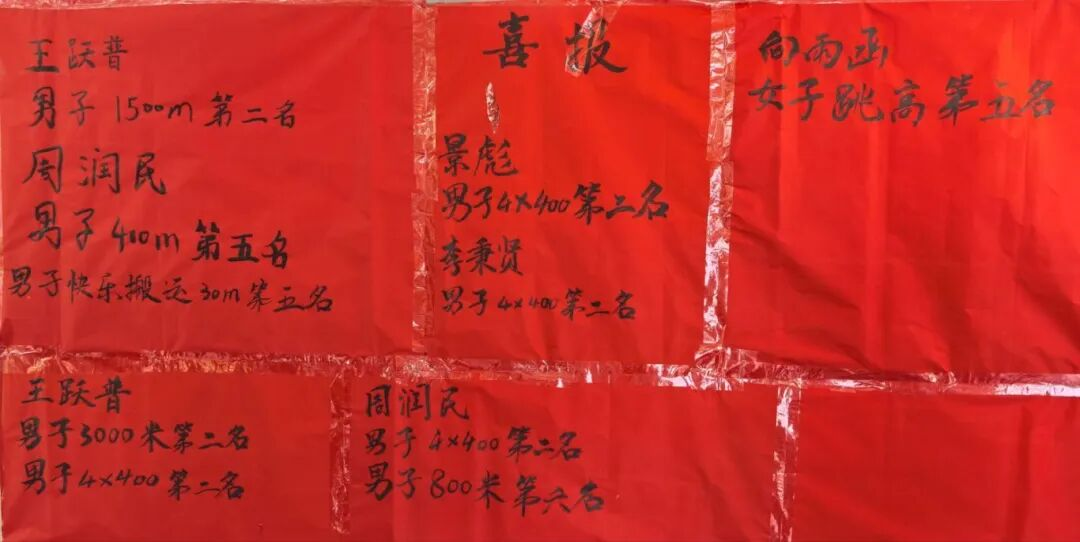 喜报
王跃普
男子1500m第二名
周润民
男子400m第五名
男子快乐搬运30m第五名
景彪
男子4×400第二名
李秉贤
男子4×400第二名
向雨函
女子跳高第五名
王跃普
男子3000米第二名
男子4×400第二名
周润民
男子4×400第二名
男子800米第六名